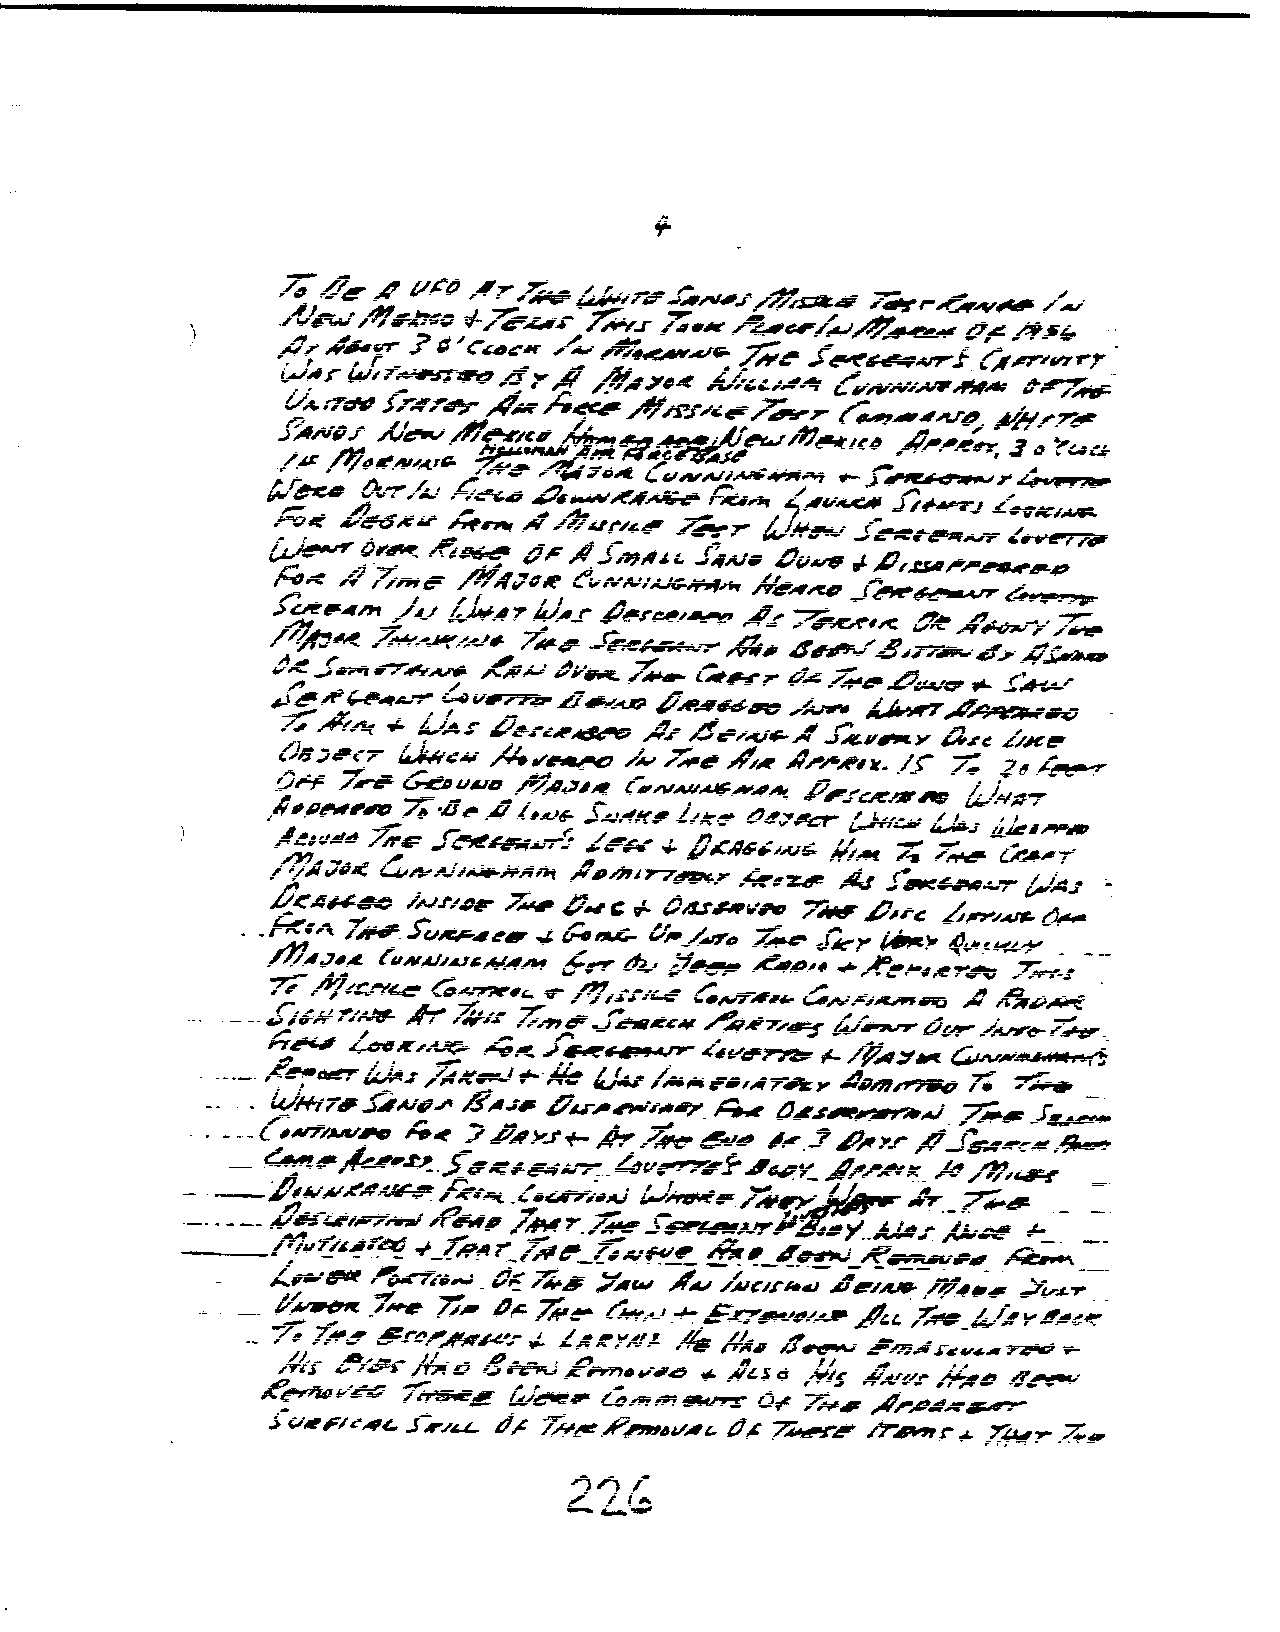 4
TO BE A UFO AT THE WHITE SANDS MISSLE TEST RANGE IN
NEW MEXICO + TEXAS THIS TOOK PLACE IN MARCH OF 1956
AT ABOUT 3 O'CLOCK IN MORNING THE SERGEANT'S CAPTIVITY
WAS WITNESSED BY A MAJOR WILLIAM CUNNINGHAM OF THE
UNITED STATES AIR FORCE MISSILE TEST COMMAND, WHITE
SANDS NEW MEXICO NEW MEXICO APPROX, 3 O'CLOCK
HOLLOMAN AIR FORCE BASE
IN MORNING THE MAJOR CUNNINGHAM + SERGEANT LOVETTE
WERE OUT IN FIELD DOWNRANGE FROM LAUNCH SIGHTS LOOKING
FOR DEBRIS FROM A MISSILE TEST WHEN SERGEANT LOVETTE
WENT OVER RIDGE OF A SMALL SAND DUNE + DISSAPPEARED
FOR A TIME MAJOR CUNNINGHAM HEARD SERGEANT LOVETTE
SCREAM IN WHAT WAS DESCRIBED AS TERROR OR AGONY THE
MAJOR THINKING THE SERGEANT HAD BEEN BITTEN BY A SNAKE
OR SOMETHING RAN OVER THE CREST OF THE DUNE + SAW
SERGEANT LOVETTE BEING DRAGGED INTO WHAT APPEARED
TO HIM + WAS DESCRIBED AS BEING A SILVERY DISC LIKE
OBJECT WHICH HOVERED IN THE AIR APPROX. 15 TO 20 FEET
OFF THE GROUND MAJOR CUNNINGHAM DESCRIBED WHAT
APPEARED TO BE A LONG SNAKE LIKE OBJECT WHICH WAS WRAPPED
AROUND THE SERGEANT'S LEGS + DRAGGING HIM TO THE CRAFT
MAJOR CUNNINGHAM ADMITTEDLY FROZE AS SERGEANT WAS
DRAGGED INSIDE THE DISC + OBSERVED THE DISC LIFTING OFF
FROM THE SURFACE + GOING UP INTO THE SKY VERY QUICKLY
MAJOR CUNNINGHAM GOT ON JEEP RADIO + REPORTED THIS
TO MISSILE CONTROL + MISSILE CONTROL CONFIRMED A RADAR
SIGHTING AT THIS TIME SEARCH PARTIES WENT OUT INTO THE
FIELD LOOKING FOR SERGEANT LOVETTE + MAJOR CUNNINGHAM'S
REPORT WAS TAKEN + HE WAS IMMEDIATELY ADMITTED TO THE
WHITE SANDS BASE DISPENSARY FOR OBSERVATION THE SEARCH
CONTINUED FOR 3 DAYS + AT THE END OF 3 DAYS A SEARCH
CAME ACROSS SERGEANT LOVETTE'S BODY APPROX 10 MILES
DOWNRANGE FROM LOCATION WHERE THEY WERE AT THE
DESCRIPTION READ THAT THE SERGEANT'S BODY WAS NUDE +
MUTILATED + THAT THE TONGUE HAD BEEN REMOVED FROM
LOWER PORTION OF THE JAW AN INCISION BEING MADE JUST
UNDER THE TIP OF THE CHIN + EXTENDING ALL THE WAY BACK
TO THE ESOPHAGUS + LARYNX HE HAD BEEN EMASCULATED +
HIS EYES HAD BEEN REMOVED + ALSO HIS ANUS HAD BEEN
REMOVED THERE WERE COMMENTS OF THE APPARENT
SURGICAL SKILL OF THE REMOVAL OF THESE ITEMS + THAT THE
226